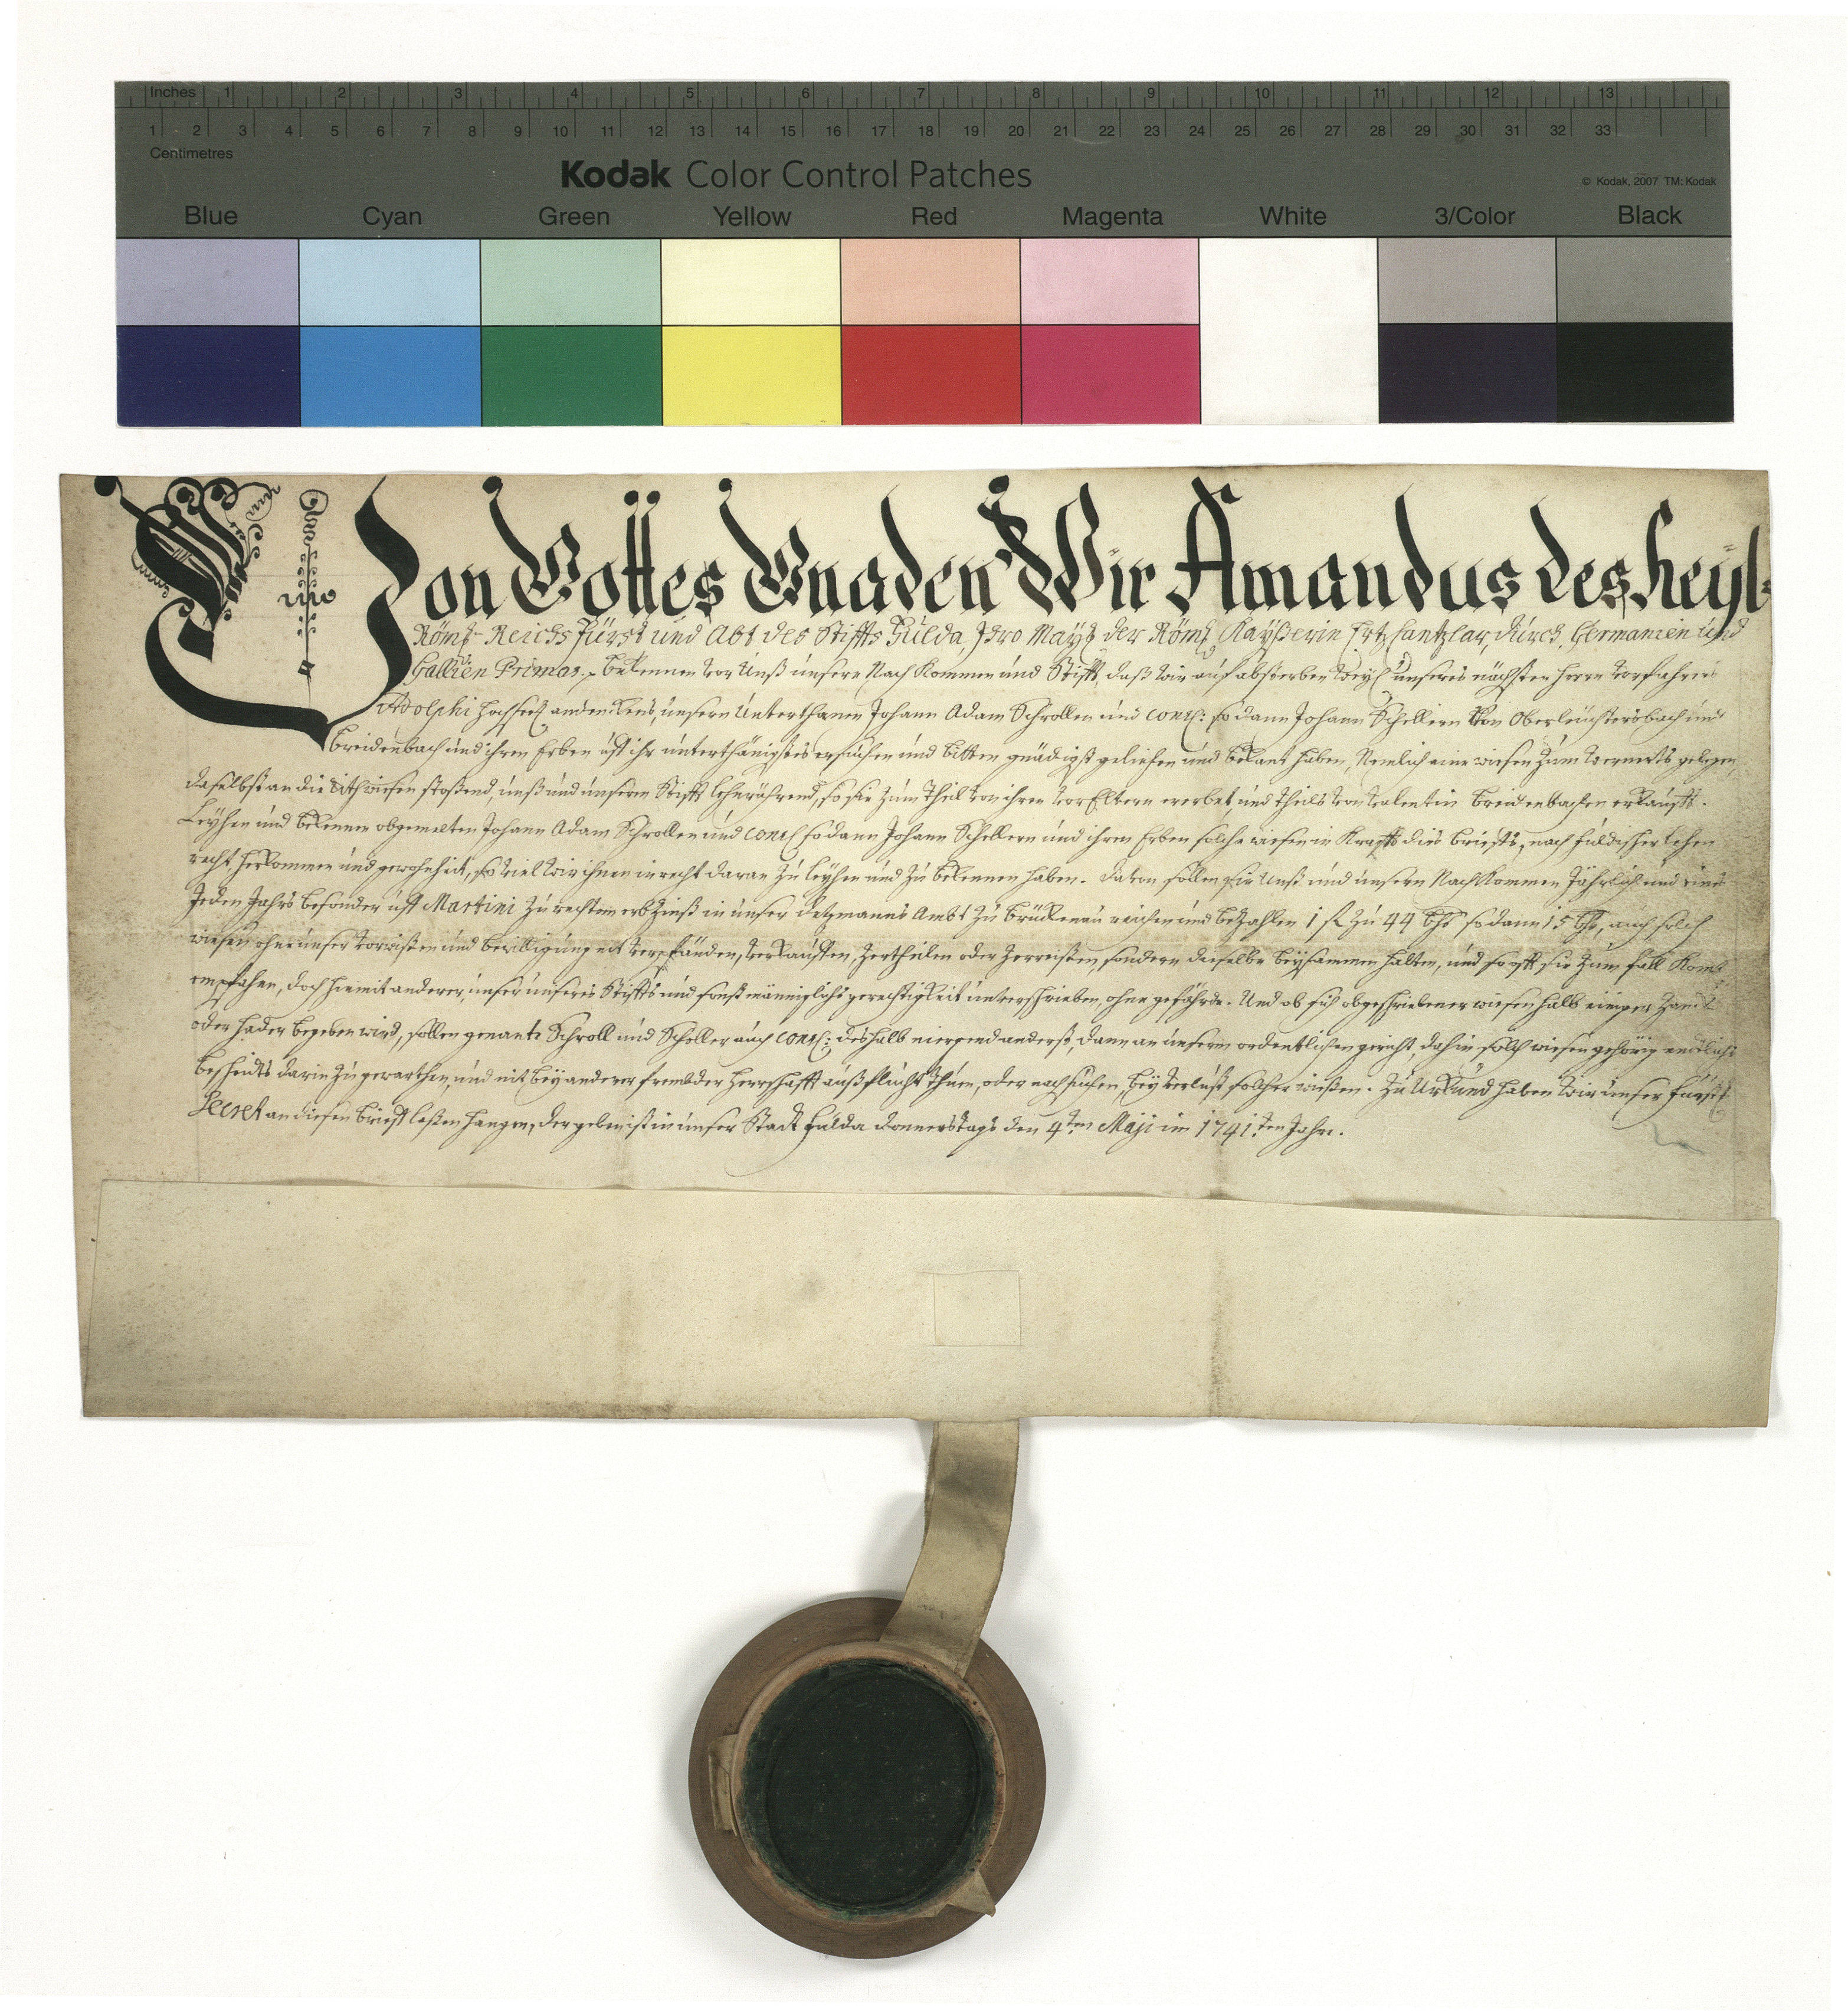 Inches 1 2 3 4 5 6 7 8 9 10 11 12 13
1 2 3 4 5 6 7 8 9 10 11 12 13 14 15 16 17 18 19 20 21 22 23 24 25 26 27 28 29 30 31 32 33
Centimetres
Kodak Color Control Patches
© Kodak, 2007 TM: Kodak
Blue Cyan Green Yellow Red Magenta White 3/Color Black
Von Gottes Gnaden Wir Amandus des Heyl:
Röm: Reichs Fürst und Abt des Stiffts Fulda, Ihro May: der Röm: Kayßerin Ertz Cantzlar, durch Germanien und
Gallien Primas. Bekennen vor Unß unsere Nach Kommen und Stifft, daß wir auf absterben weyl: unseres nächsten Herrn Vorfahrers
Adolphi hochseel: andenckens, unsern Unterthanen Johann Adam Schrollen und cons: so dann Johann Schellern von Oberleuchtersbach und
Breidenbach und ihren Erben uff ihr unterthänigstes ersuchen und bitten gnädigst geliehen und bekant haben, Nemlich eine wiesen zum Wernerts gelegen,
daselbst an die wiesen stoßend, unß und unserm Stifft lehnrührend, so sie zum Theil von ihren VorEltern ererbet und theils von Valentin Breidenbachen erkaufft.
Leyhen und bekennen obgemelten Johann Adam Schrollen und cons: so dann Johann Schellern und ihren Erben solche wiesen in Krafft dies brieffs, nach fuldischer lehen
recht, herkommen und gewohnheit, so viel wir ihnen in recht daran zu leyhen und zu bekennen haben. Davon sollen sie Unß und unsern NachKommen Jährlich und eines
Jeden Jahrs besonder uff Martini zu rechtem erbzinß in unser Ambt zu Brückenau reichen und bezahlen 1 fl. zu 44 so dann 15 auch solch
wiesen ohne unser vorwissen und bewilligung nit verpfänden, verkauffen, zertheilen oder zerreissen, sondern dieselbe beysammen halten, und so offt sie zum fall Komt
empfahen, doch hiemit anderer, unser unseres Stiffts und sonst männiglichs gerechtigkeit unverschrieben, ohne gefährde. Und ob sich obgeschriebener wiesen halb einiger Zanck
oder hader begeben wird, sollen genante Schroll und Scheller auch cons: deshalb niergend anderst, dann an unserm ordentlichen gericht, dahin solch wiesen gehörig endlichs
bescheidts darin zu gewarthen, und nit bey anderer frembder Herrschafft außflucht thun, oder nachsuchen, bey verlust solcher wießen. Zu Urkund haben wir unser Fürstl:
Secret an diesen brieff lassen hangen, der geben ist in unser Stadt Fulda Donnerstags den 4ten Maji im 1741.ten Jahre.